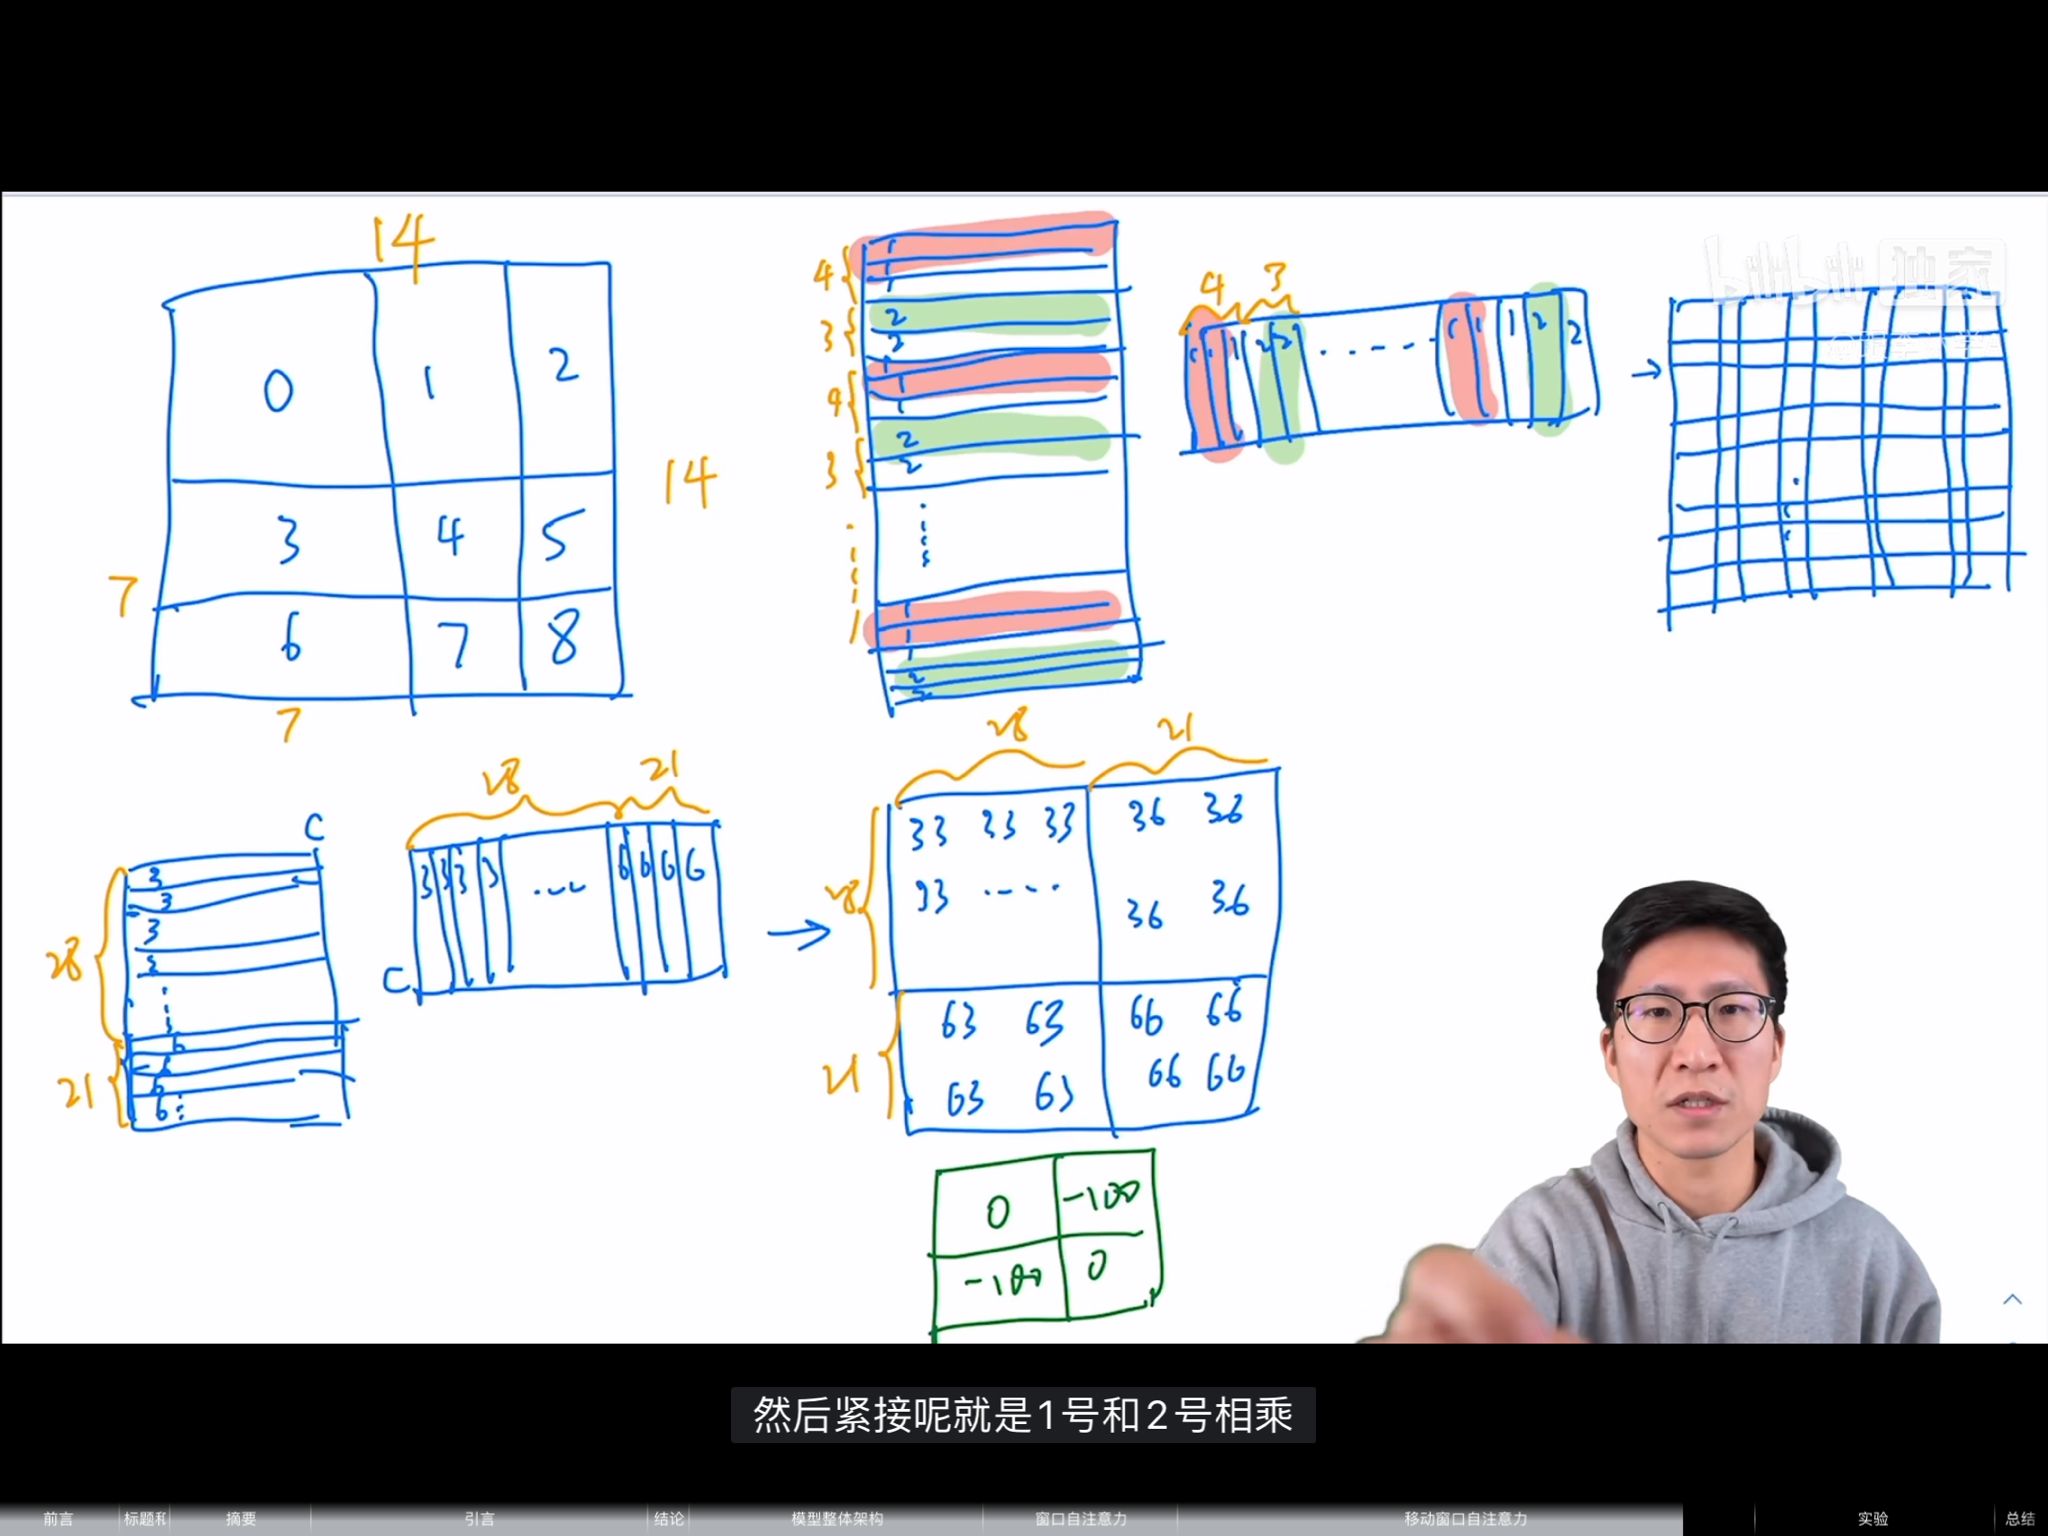 14
0 1 2
3 4 5
6 7 8
14
7
7
4
3
4
3
1
1
2
2
1
1
2
2
1
1
2
2
4 3
1 1 1 2 2
1 1 1 2 2
bilibili 独家
28 21
C
3 3 3 3 6 6 6 6
C
28
21
3
3
3
3
6
6
6
6
28 21
28
21
33 33 33 36 36
33 36 36
63 63 66 66
63 63 66 66
0 -100
-100 0
然后紧接呢就是1号和2号相乘
前言 标题和 摘要 引言 结论 模型整体架构 窗口自注意力 移动窗口自注意力 实验 总结